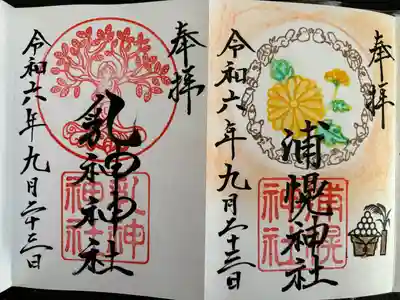 奉拝
乳神神社
乳神
神社
令和六年九月二十三日
奉拝
浦幌神社
浦幌
神社
令和六年九月二十三日